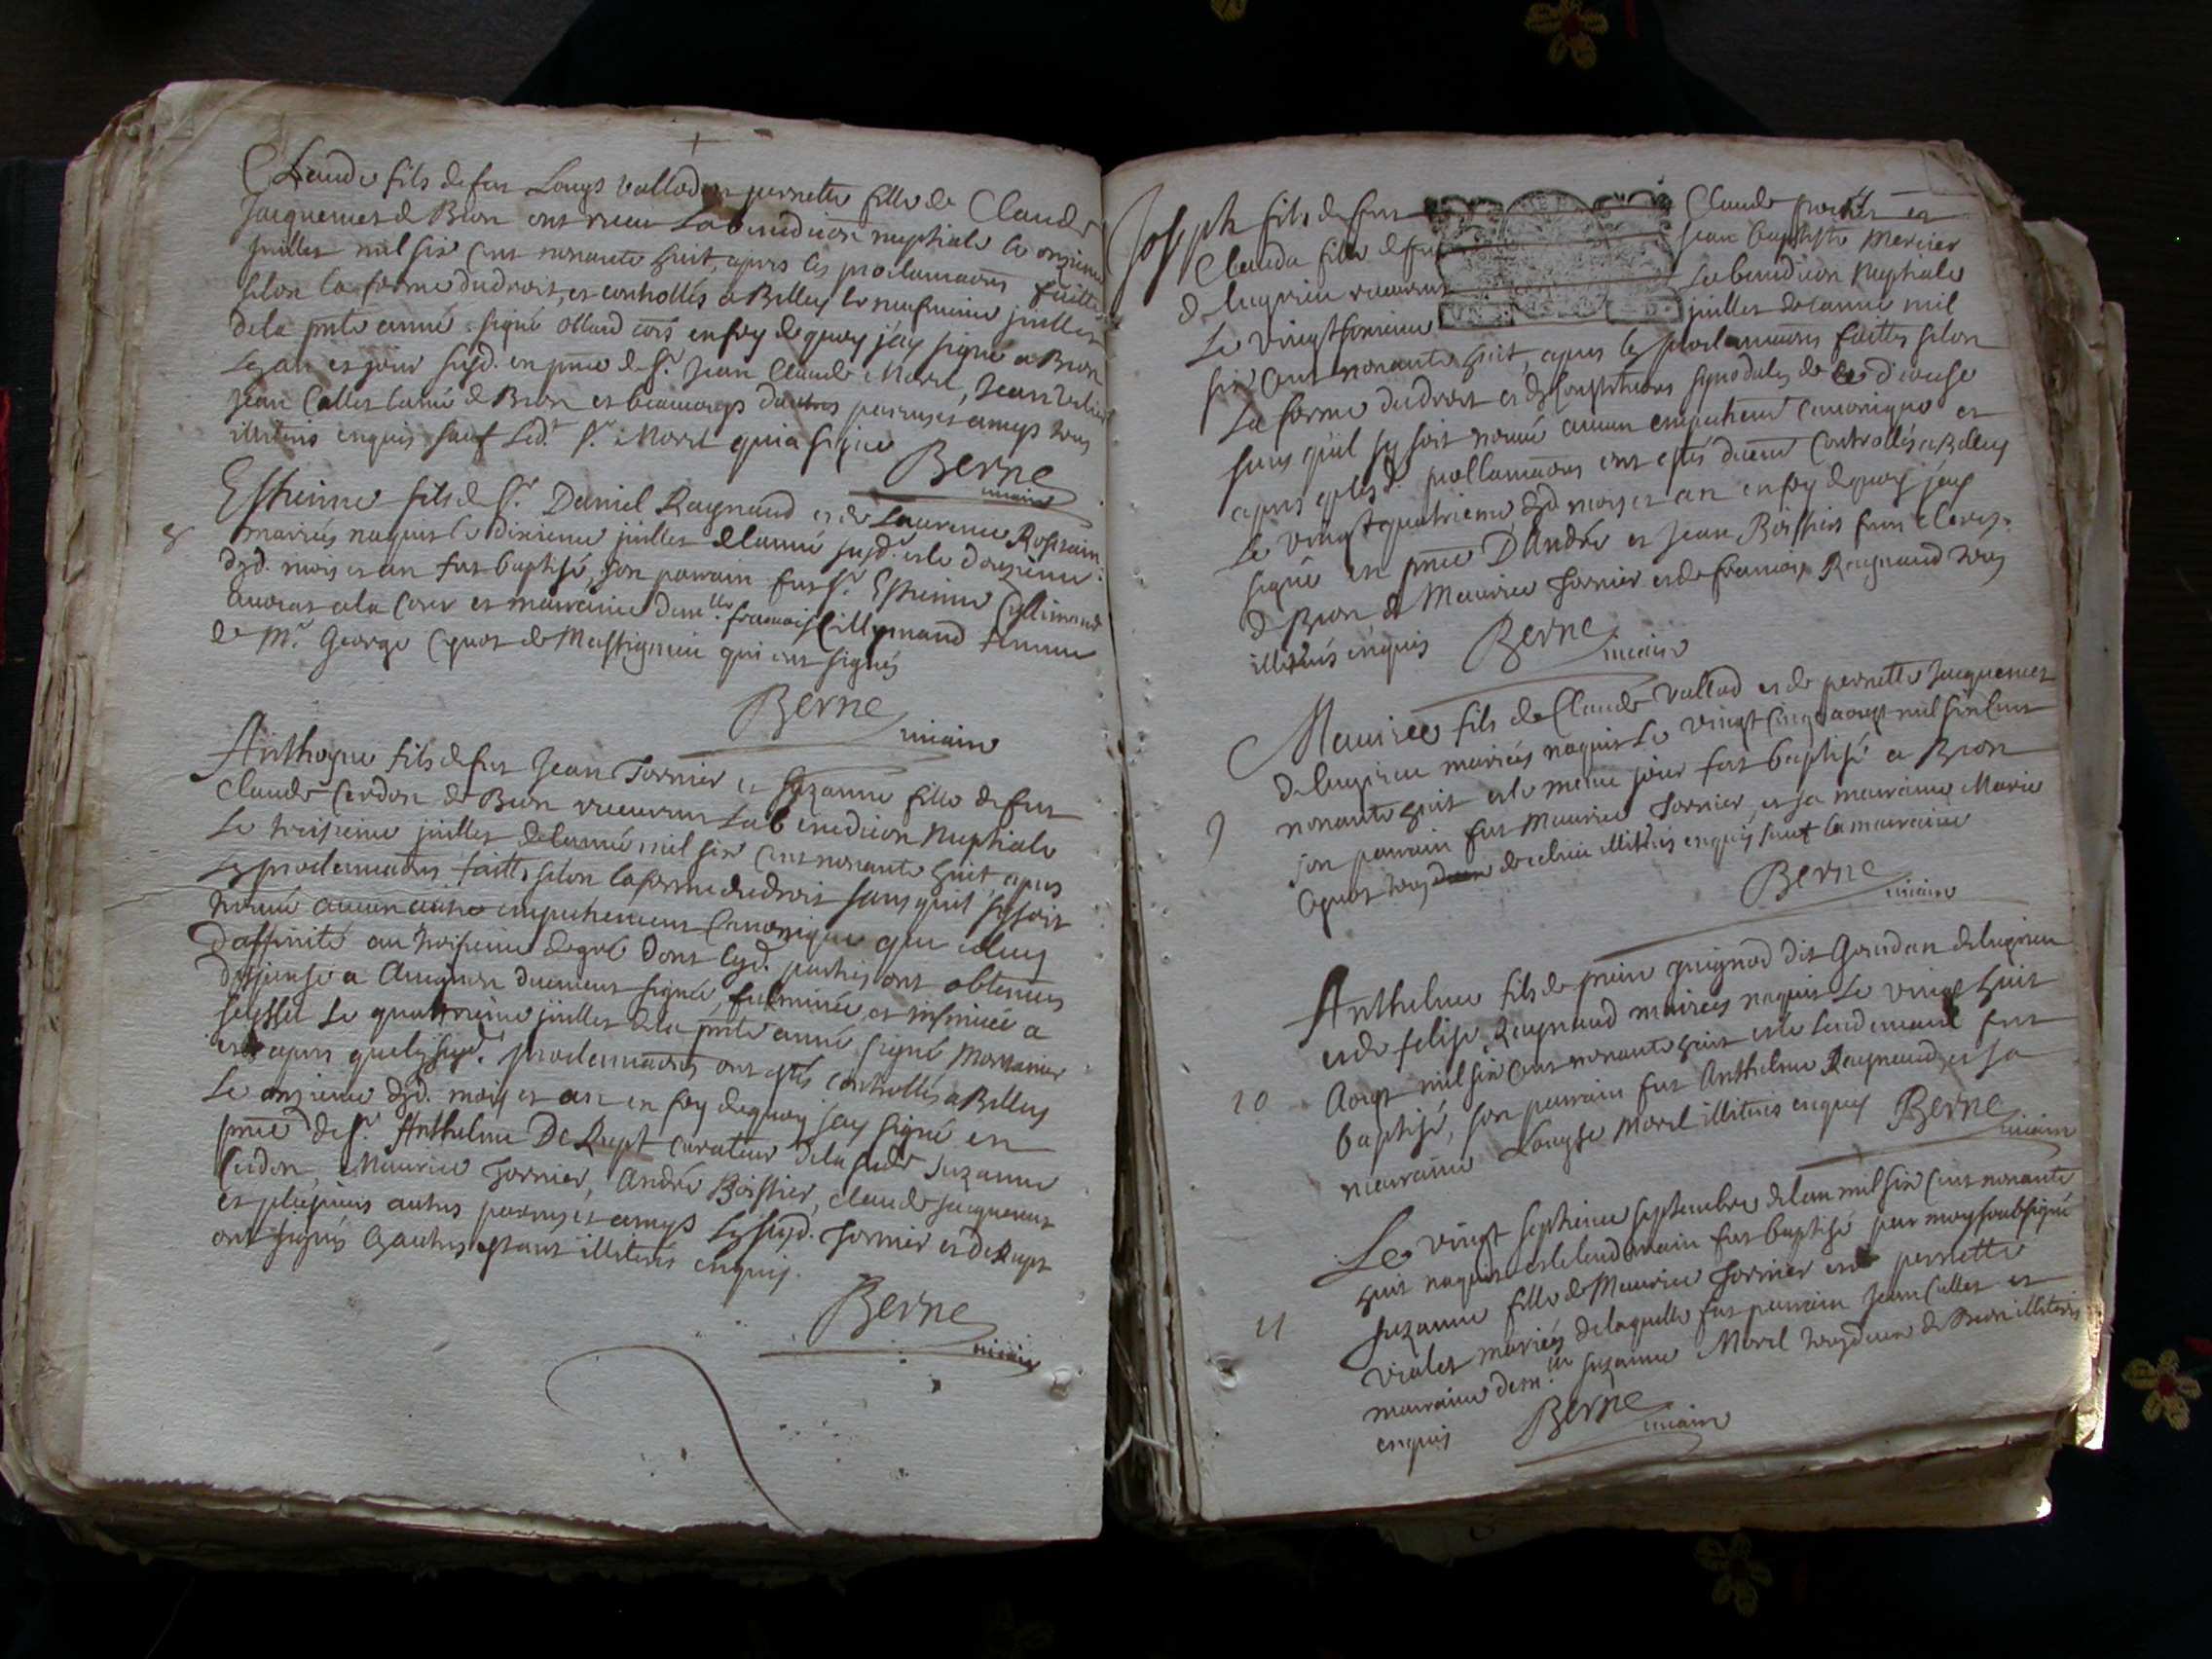 Claude fils de fut Louys vallod et pernette fille de Claude
Jacquemet de Brion ont receu La benediction nuptiale le onzieme
juillet mil six cent nonante huit, apres les proclamaons faittes
selon la forme du droit, et controllés a Belley le neufvieme juillet
de la pnte année signé Ollard cors en foy de quoy j'ay signé a Brion
Les an et jour susd. en pnce de Sr. Jean Claude Morel, Jean
Jean Callet lainé de Brion et beaucoups dautres parens et amys tous
illitérés enquis sauf Led.t Sr. Morel qui a signé
Berne
vicaire
8
Estienne fils de Sr. Daniel Raynaud et de Laurence
mariés naquit le dixieme juillet de lanné susd. et le douzieme
dud. mois et an fut baptisé, son parrain fut Sr. Estienne
avocat a la Cour et marraine dam.lle francoise Cillymand femme
de Mr. George Cquot de Mastignieu qui ont signés
Berne
vicaire
Anthoyne fils de fut Jean Tornier et Suzanne fille de fut
Claude Cerdon de Brion receurent La benediction Nuptiale
Le troisieme juillet de lanné mil six cent nonante huit, apres
Les proclamaons faittes selon la forme du droit sans quil sy soit
trouvé aucun autre empechement Canonique que celuy
d'affinité au troisieme degré dont lesd. parties ont obtenues
dispense a Avignon duement signée, fulminée, et insinuée a
le quatrieme juillet de la pnte année signé
et apres quoy lesd. proclamaons ont estés controllés a Belley
Le onzieme dud. mois et an en foy de quoy jay signé en
pnce de Sr. Anthelme De Rupt curateur de la susde Suzanne
Cerdon, Maurice Tornier, André Boissier, Claude Jacquemet
et plusieurs autres parens et amys Lesd. Tornier et de Rupt
ont signés Les autres estant illiterés enquis.
Berne
vicaire
Joseph fils de fut Claude et
Clauda fille de fut Jean baptiste Mercier
de lugrieu receurent La benediction Nuptiale
Le vingt juillet de lanné mil
six cent nonante huit, apres les proclamaons faittes selon
La forme du droit et des Constitutions synodales de ce dioceise
sans quil sy soit trouvé aucun empechemt Canonique et
apres q lesd. proclamaons ont estés duemt Controllés a Belley
Le vingt quatrieme dud. mois et an en foy de quoy jay
signé en pnce D'André et Jean Boissiers
de Brion de Maurice Tornier et de francois Raynaud tous
illiterés enquis
Berne
vicaire
9
Maurice fils de Claude Vallod et de pernette Jacquemet
de lugrieu mariés naquit Le vingt cinq aoust mil six cent
nonante huit et le meme jour fut baptisé a Brion
son parrain fut Maurice Tornier, et sa marraine Marie
Cquot tous illiterés enquis sauf la marraine
Berne
vicaire
10
Anthelme fils de guignod dit Goudan de lugrieu
et de felise Raynaud mariés naquit Le vingt huit
Aoust mil six cent nonante huit et le lendemain fut
baptisé, son parrain fut Anthelme Raynaud, et sa
marraine Louyse Morel illiterés enquis
Berne
vicaire
11
Le vingt septieme septembre de lan mil six cent nonante
huit naquit et le lendemain fut baptisé par moy soubsigné
Suzanne fille de Maurice Tornier et de pernette
Violet mariés de laquelle fut parrain Jean Callet et
marraine dem.lle Suzanne Morel tous deux de Brion illiterés
enquis
Berne
vicaire